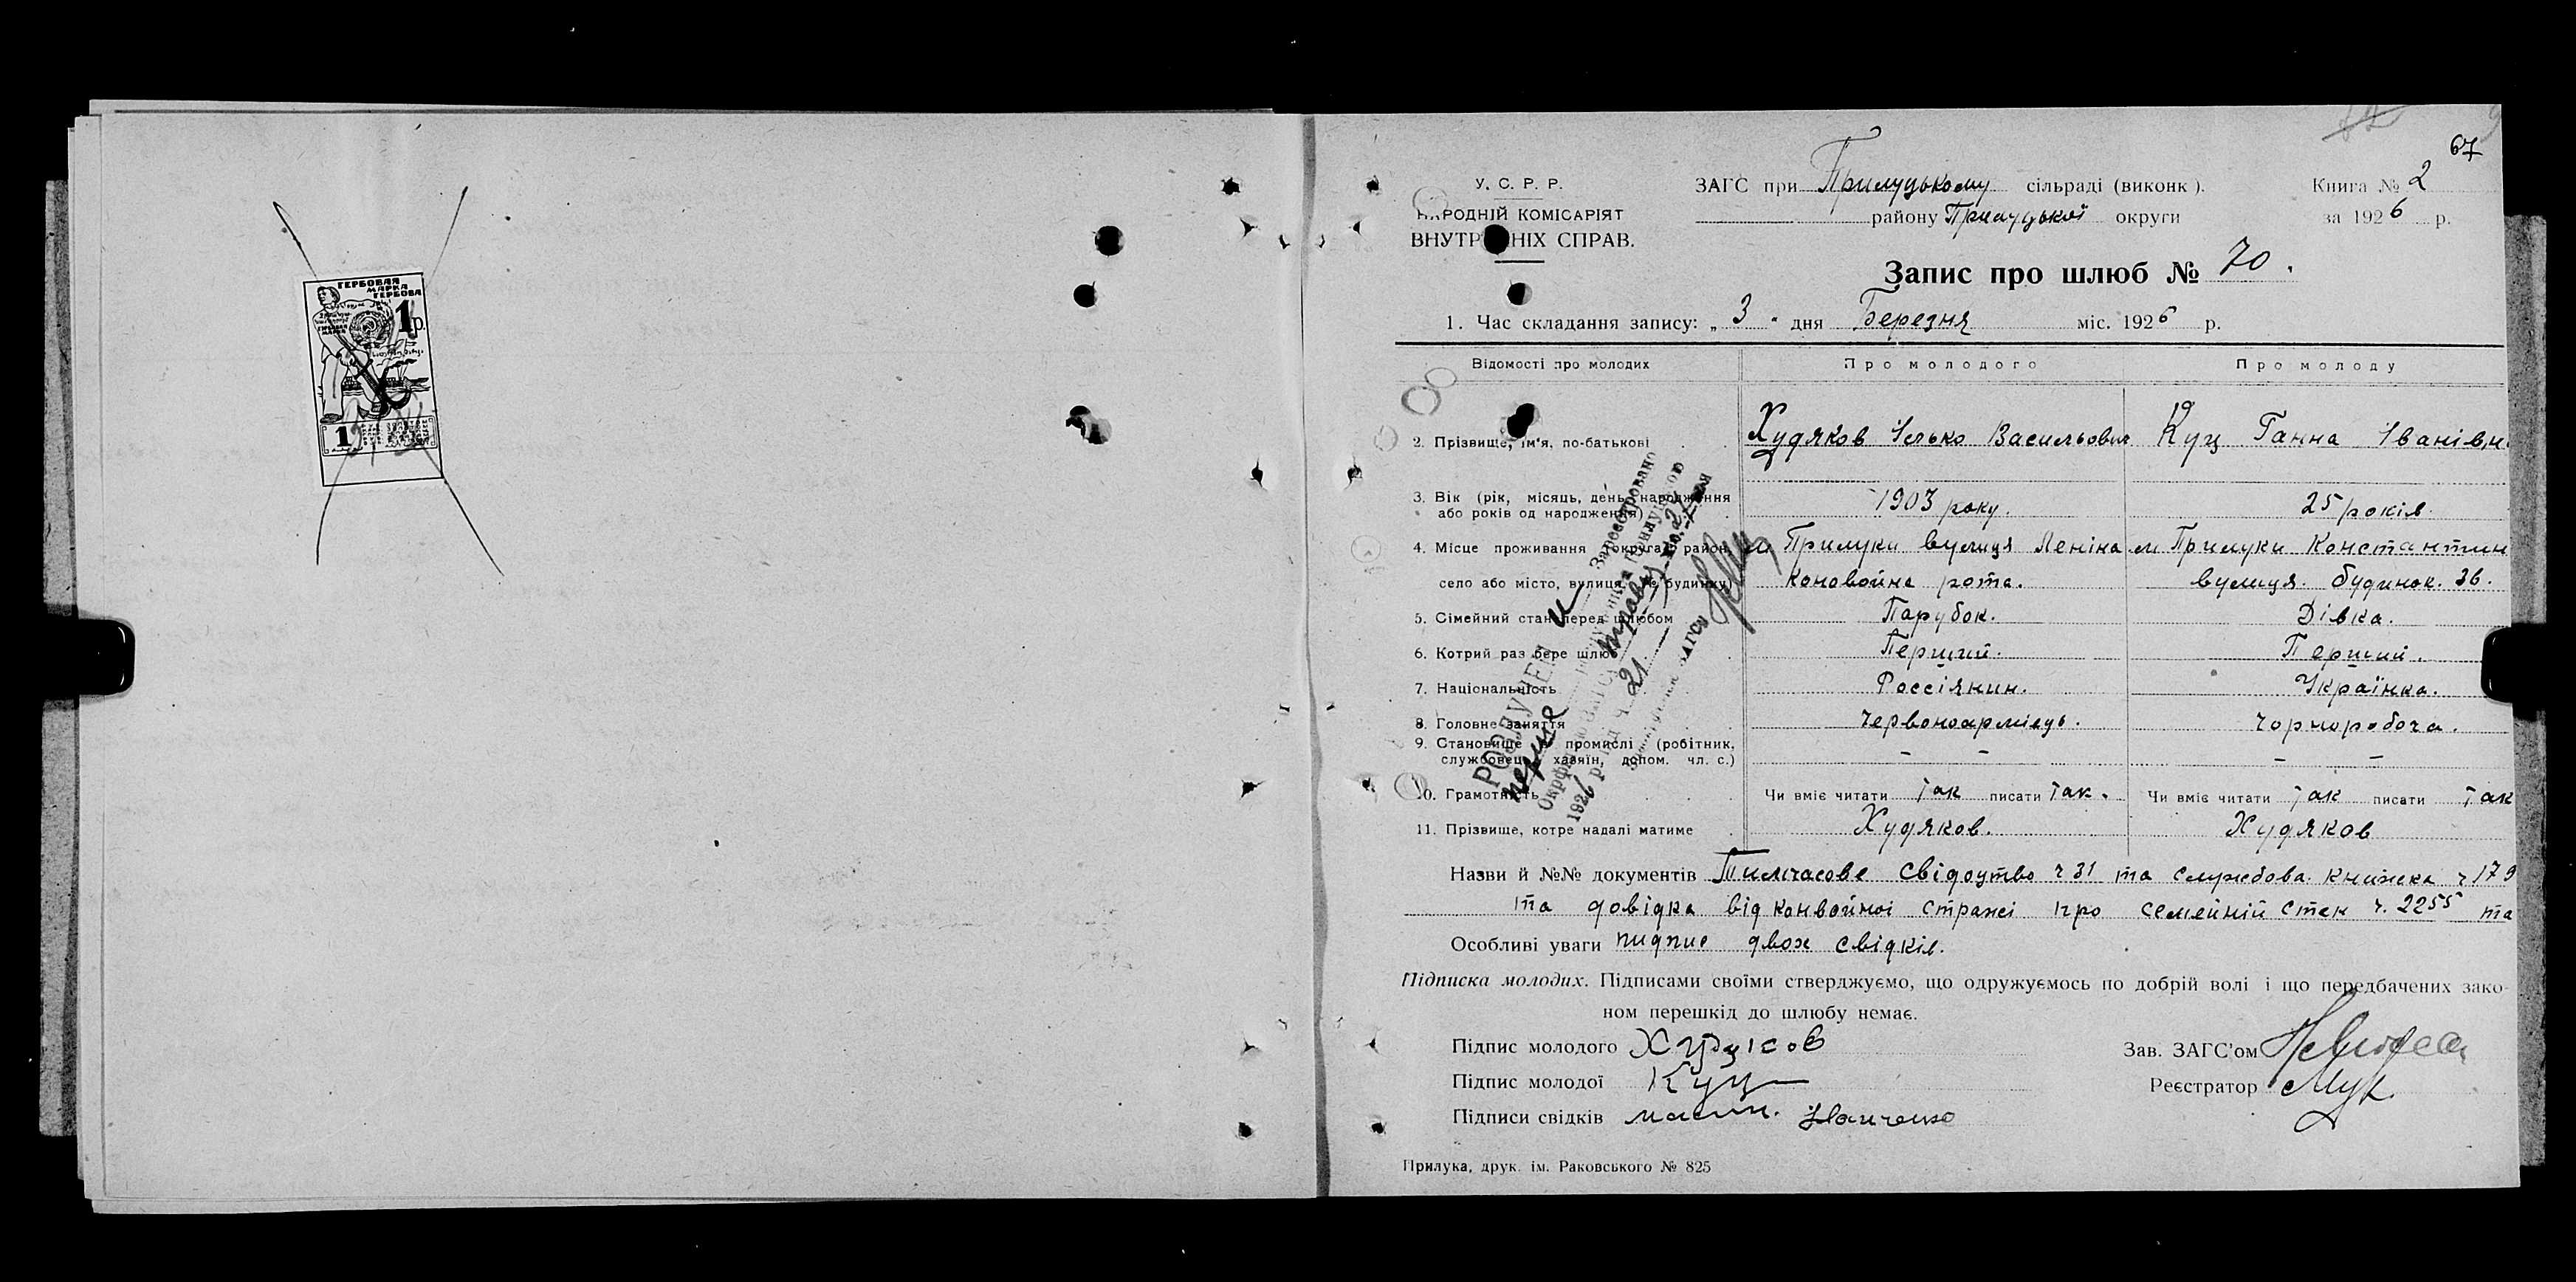 ГЕРБОВАЯ
МАРКА
ГЕРБОВА
1р.
1
67
У. С. Р. Р.
НАРОДНІЙ КОМІСАРІЯТ
ВНУТР НІХ СПРАВ.
ЗАГС при Прилуцькому сільраді (виконк).
району Прилуцької округи
Книга № 2
за 1926 р.
Запис про шлюб № 70.
1. Час складання запису: „ 3 " дня Березня міс. 1926 р.
Відомості про молодих
Про молодого
Про молоду
2. Прізвище, ім'я, по-батькові Худяков Ілько Васильович Куц Ганна Іванівн
3. Вік (рік, місяць, день народження
або років од народження) 1903 року. 25 років.
4. Місце проживання (округа, район, м Прилуки вулиця Леніна м Прилуки Константин
село або місто, вулиця, № будинку) Коновойна рота. вулиця. будинок. 36.
5. Сімейний стан перед шлюбом Парубок. Дівка.
6. Котрий раз бере шлюб Перший. Перший.
7. Національність Россіянин. Українка.
8. Головне заняття Червоноармієць. Чорноробоча.
9. Становище в промислі (робітник, – – – –
службовець, хазяїн, допом. чл. с.)
10. Грамотність Чи вміє читати так писати так. Чи вміє читати так писати так
11. Прізвище, котре надалі матиме Худяков. Худяков
РОЗЛУЧЕН
перше
Зареєстровано
1926 р. під ч. 21
Назви й №№ документів Тимчасове свідоцтво ч 31 та службова книжка ч 179
та довідка від конвойноі стражі про семейній стан ч. 2255 та
Особливі уваги пидпис двох свідків.
Підписка молодих. Підписами своїми стверджуємо, що одружуємось по добрій волі і що передбачених зако-
ном перешкід до шлюбу немає.
Підпис молодого Худяков
Підпис молодої Куц
Підписи свідків
Зав. ЗАГС'ом
Реєстратор
Прилука, друк. ім. Раковського № 825